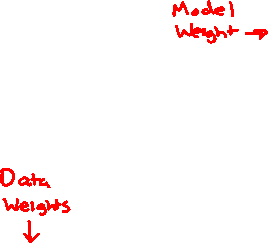 Model
Weight →
Data
Weights
↓